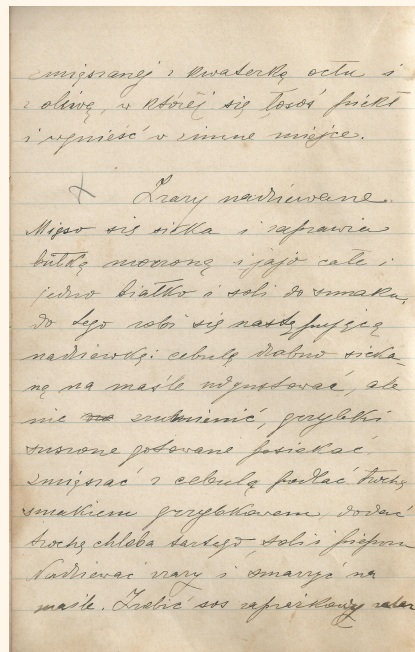 zmięszanej z kwaterką octu i
z oliwą, w której się łosoś piekł
i wynieść w zimne miejsce.
Zrazy nadziewane.
Mięso się sieka i zaprawia
bułką moczoną i jajo całe i
jedno białko i soli do smaku,
do tego robi się następującą
nadziewkę: cebulę drobno sieka-
ną na maśle udustować, ale
nie zrumienić, grzybki
suszone gotowane posiekać,
zmięszać z cebulą podlać trochę
smakiem grzybkowem, dodać
trochę chleba tartego, soli i pieprzu
Nadziewać zrazy i smarzyć na
maśle. Zrobić sos zaprażkowy